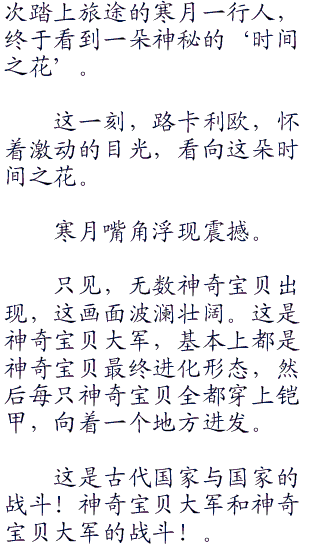 次踏上旅途的寒月一行人，
终于看到一朵神秘的‘时间
之花’。
这一刻，路卡利欧，怀
着激动的目光，看向这朵时
间之花。
寒月嘴角浮现震撼。
只见，无数神奇宝贝出
现，这画面波澜壮阔。这是
神奇宝贝大军，基本上都是
神奇宝贝最终进化形态，然
后每只神奇宝贝全都穿上铠
甲，向着一个地方进发。
这是古代国家与国家的
战斗！神奇宝贝大军和神奇
宝贝大军的战斗！。